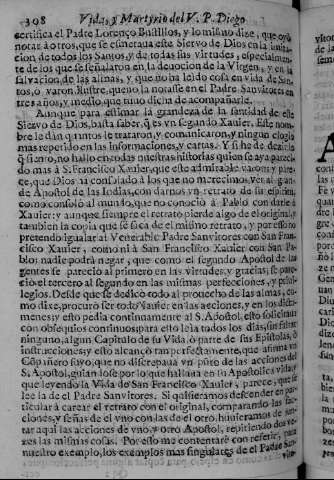 308 Vidas, y Martyrio del V. P. Diego
certifica el Padre Lorenço Bustillos, y lo mismo dize, que oyò
notar à otros, que se esmeraua este Siervo de Dios en la imita-
cion de todos los Santos, y de todas sus virtudes, especialmen-
te de los que se señalaron en la deuocion de la Virgen, y en la
salvacion de las almas, y que no ha leido cosa en vida de San-
tos, ò varon ilustre, que no la notasse en el Padre Sanvitores en
tres años, y medio, que tuuo dicha de acompañarle.
Aunque para estimar la grandeza de la santidad de este
Siervo de Dios, basta saber, q̃ es vn segundo Xauier. Este nom-
bre le dàn quantos le trataron, y comunicaron, y ningun elogio
mas repetido en las informaciones, y cartas. Y si he de dezir lo
q̃ siento, no hallo en todas nuestras historias quien se aya pareci-
do mas à S. Francisco Xauier, que este admirable varon; y pare-
ce, que Dios nà consolado à los que no merecimos ver al gran-
de Apostol de las Indias, con darnos vn retrato de su espiritu,
como consolò al mundo, que no conociò à Pablo con darle à
Xauier: y aunque siempre el retrato pierde algo de el original, y
tambien la copia que se saca de el mismo retrato, y por esso no
pretendo igualar al Venerable Padre Sanvitores con San Fran-
cisco Xauier, como ni à San Francisco Xauier con San Pa-
blo; nadie podrà negar, que como el segundo Apostol de las
gentes se pareciò al primero en las virtudes, y gracias; se pare-
ciò el tercero al segundo en las mismas perfecciones, y priui-
legios. Desde que se dedicò todo al prouecho de las almas, co-
mo dixe, procurò ser todo Xauier en las acciones, y en los dictá-
menes; y esto pedia continuamente al S. Apostol, esto solicitaua
con obsequios continuos; para esto leia todos los dias, sin faltar
ninguno, algun Capitulo de su Vida, ò parte de sus Epistolas, è
instrucciones; y esto alcançò tan perfectamente, que afirma vn
Cõpañero suyo, que no discrepaua vn punto de las acciones del
S. Apostol, guiandose por lo que hallaua en su Apostolica vida; y
que leyendo la Vida de San Francisco Xauier, parece, que se
lee la de el Padre Sanvitores. Si quisieramos descender en par-
ticular à carear el retrato con el original, comparando las fac-
ciones, y señas de el vno con las de el otro, huuieramos de jun-
tar aqui las acciones de vno, y otro Apostol, repitiendo dos ve-
zes las mismas cosas. Por esto me contentarè con referir, para
nuestro exemplo, los exemplos mas singulares de el Padre San-